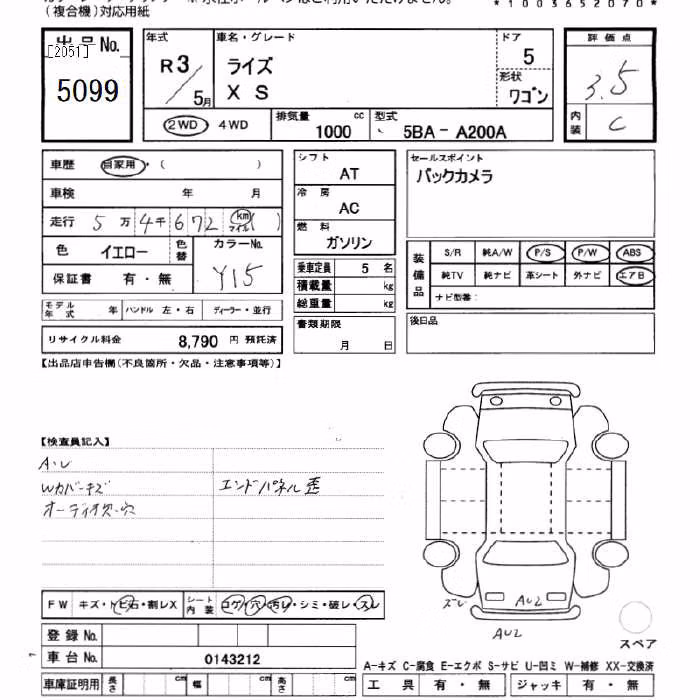 (複合機)対応用紙
*1003652070*
出品No.
[2051]
5099
年式
R3/5月
車名・グレード
ライズ
X S
ドア
5
形状
ワゴン
評価点
3.5
内装
C
2WD・4WD
排気量 cc
1000
型式
5BA- A200A
車歴 自家用・( )
車検 年 月
走行 5万4千672 km マイル ( )
色 イエロー 色替
カラーNo.
Y15
保証書 有・無
モデル年式 年 ハンドル 左・右 ディーラー・並行
リサイクル料金 8,790 円 預託済
シフト
AT
冷房
AC
燃料
ガソリン
乗車定員 5 名
積載量 kg
総重量 kg
書類期限
月 日
セールスポイント
バックカメラ
装備品
S/R 純A/W P/S P/W ABS
純TV 純ナビ 革シート 外ナビ エアB
ナビ型番:
後日品
【出品店申告欄(不良箇所・欠品・注意事項等)】
【検査員記入】
A・U
Wカバーキズ
オーディオ欠・穴
エンドパネル歪
FW キズ・トビ石・割レX
シート内装 コゲ・穴・汚レ・シミ・破レ・スレ
登録No.
車台No. 0143212
車庫証明用 長さ cm 幅 cm 高さ cm
ズレ
AU2
AU2
スペア
A-キズ C-腐食 E-エクボ S-サビ U-凹ミ W-補修 XX-交換済
工具 有・無 ジャッキ 有・無